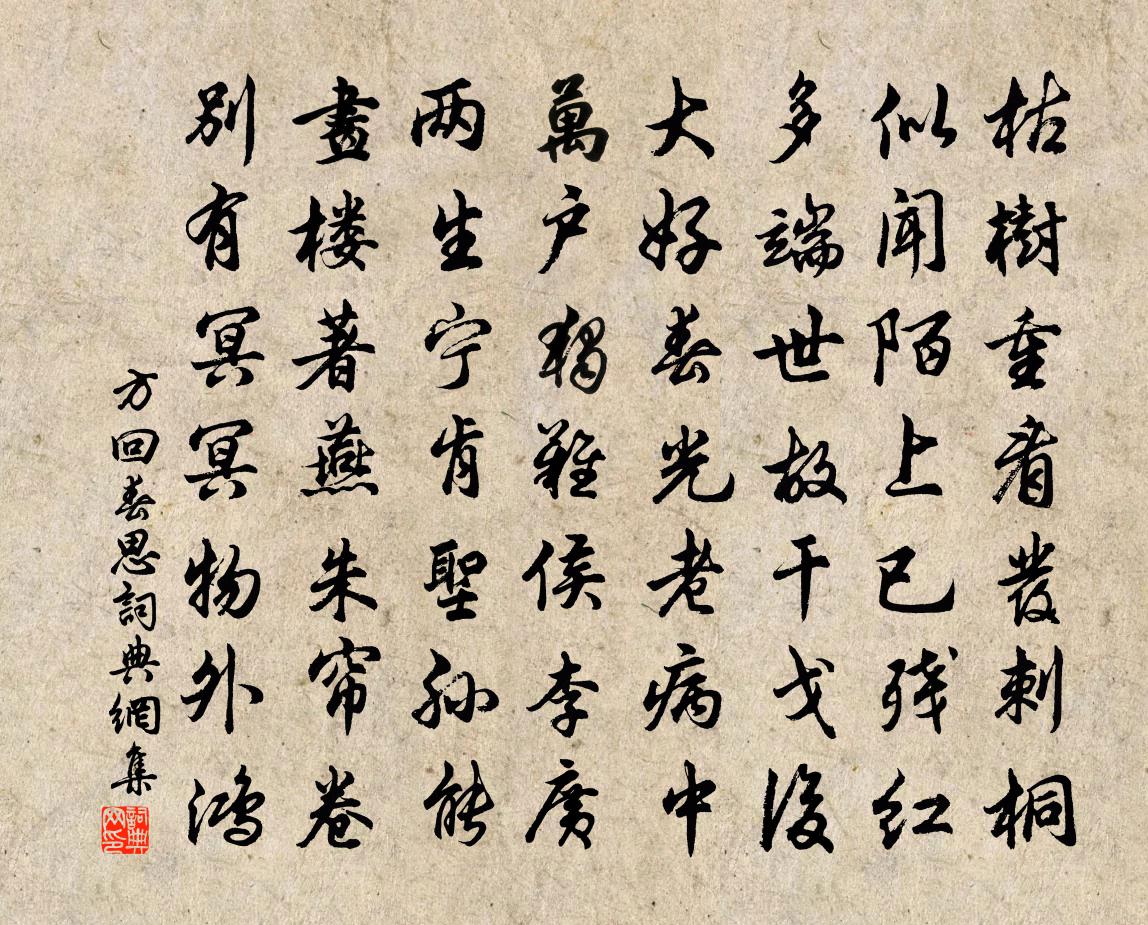 枯樹重看發刺桐
似聞陌上已残红
多端世故干戈後
大好春光老病中
萬户獨難侯李廣
两生宁肯聖孙能
畫楼著燕朱帘卷
别有冥冥物外鸿
方回春思詞典網集
詞典網印